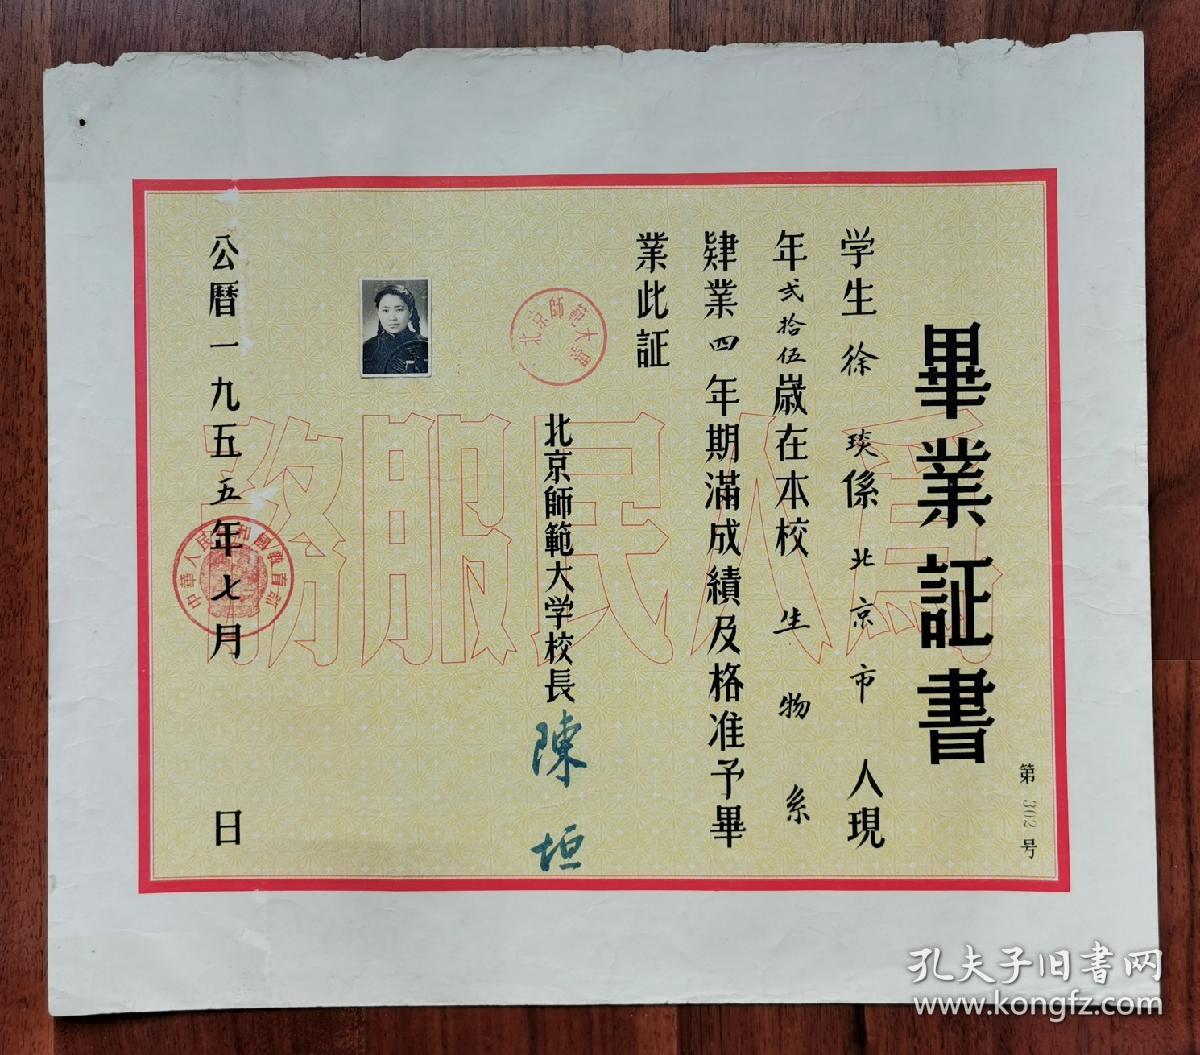 畢業証書
第302号
学生徐琰係北京市人現
年弍拾伍歲在本校生物系
肄業四年期滿成績及格准予畢
業此証
北京師範大学
北京師範大学校長陳垣
公曆一九五五年七月 日
中華人民共和國教育部
為人民服務
孔夫子旧書网
www.kongfz.com